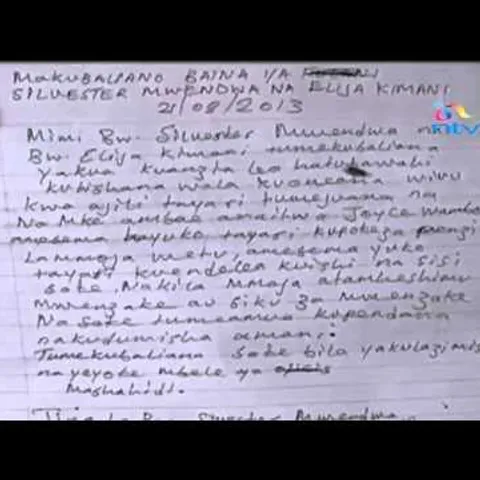 MAKUBALIANO BAINA YA
SILVESTER MWENDWA NA ELIJA KIMANI
21/08/2013
ntv
Mimi Bw. Silvester Mwendwa na
Bw. Elija Kimani tumekubaliana
yakua kuanzia leo hatutawahi
kubishana wala kuoneana wivu
kwa ajili tayari tumejuana na
Na Mke ambae anaitwa Joyce Wambo
amesema hayuko tayari kupoteza penzi
La mmoja wetu, amesema yuko
tayari kuendelea kuishi na sisi
sote, Nakila mmoja ataheshimu
Mwenzake au siku za mwenzake
Na sote tumeamua kupendana
nakudumisha amani:
Tumekubaliana sote bila yakulazimis
na yeyote mbele ya
Mashahidi.
Mwendwa